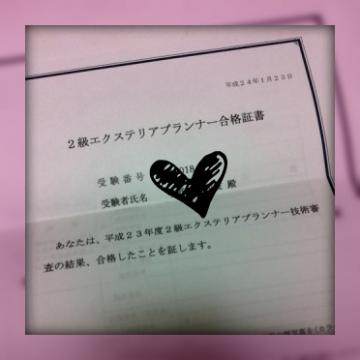 平成24年1月23日
2級エクステリアプランナー合格証書
受験番号 018
受験者氏名 殿
あなたは、平成23年度2級エクステリアプランナー技術審
査の結果、合格したことを証します。